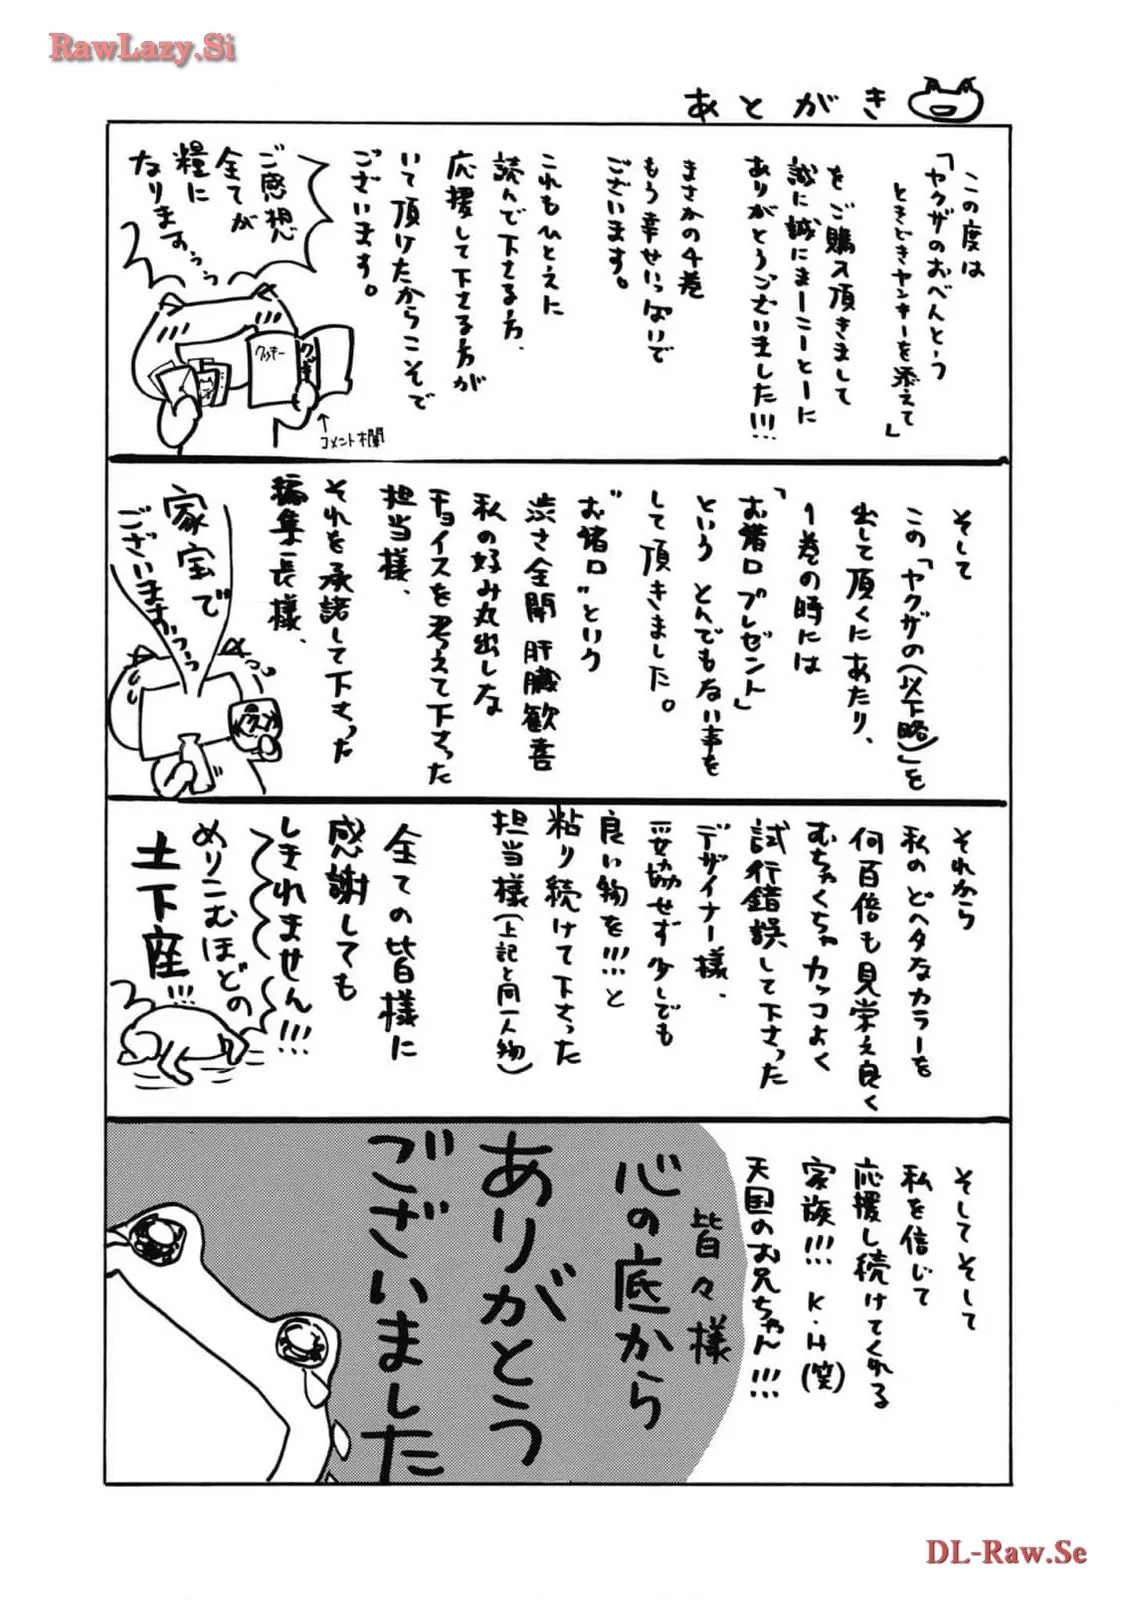 RawLazy.Si
あとがき
この度は
「ヤクザのおべんとう
ときどきヤンキーを添えて」
をご購入頂きまして
誠に誠にまーこーとーに
ありがとうございました!!!
まさかの4巻
もう幸せいっぱいで
ございます。
これもひとえに
読んで下さる方、
応援して下さる方が
いて頂けたからこそで
ございます。
ご感想
全てが
糧に
なりますぅぅ
クッキー
↑
コメント欄
そして
この「ヤクザの(以下略)」を
出して頂くにあたり、
1巻の時には
「お猪口プレゼント」
という とんでもない事を
して頂きました。
“お猪口”という
渋さ全開 肝臓歓喜
私の好み丸出しな
チョイスを考えて下さった
担当様、
それを承諾して下さった
編集長様、
家宝で
ございますぅぅ
それから
私のどヘタなカラーを
何百倍も見栄え良く
むちゃくちゃカッコよく
試行錯誤して下さった
デザイナー様、
妥協せず少しでも
良い物を!!!と
粘り続けて下さった
担当様(上記と同一人物)
全ての皆様に
感謝しても
しきれません!!!
めりこむほどの
土下座!!!
そしてそして
私を信じて
応援し続けてくれる
家族!!! K.H(笑)
天国のお兄ちゃん!!!
皆々様
心の底から
ありがとう
ございました
DL-Raw.Se